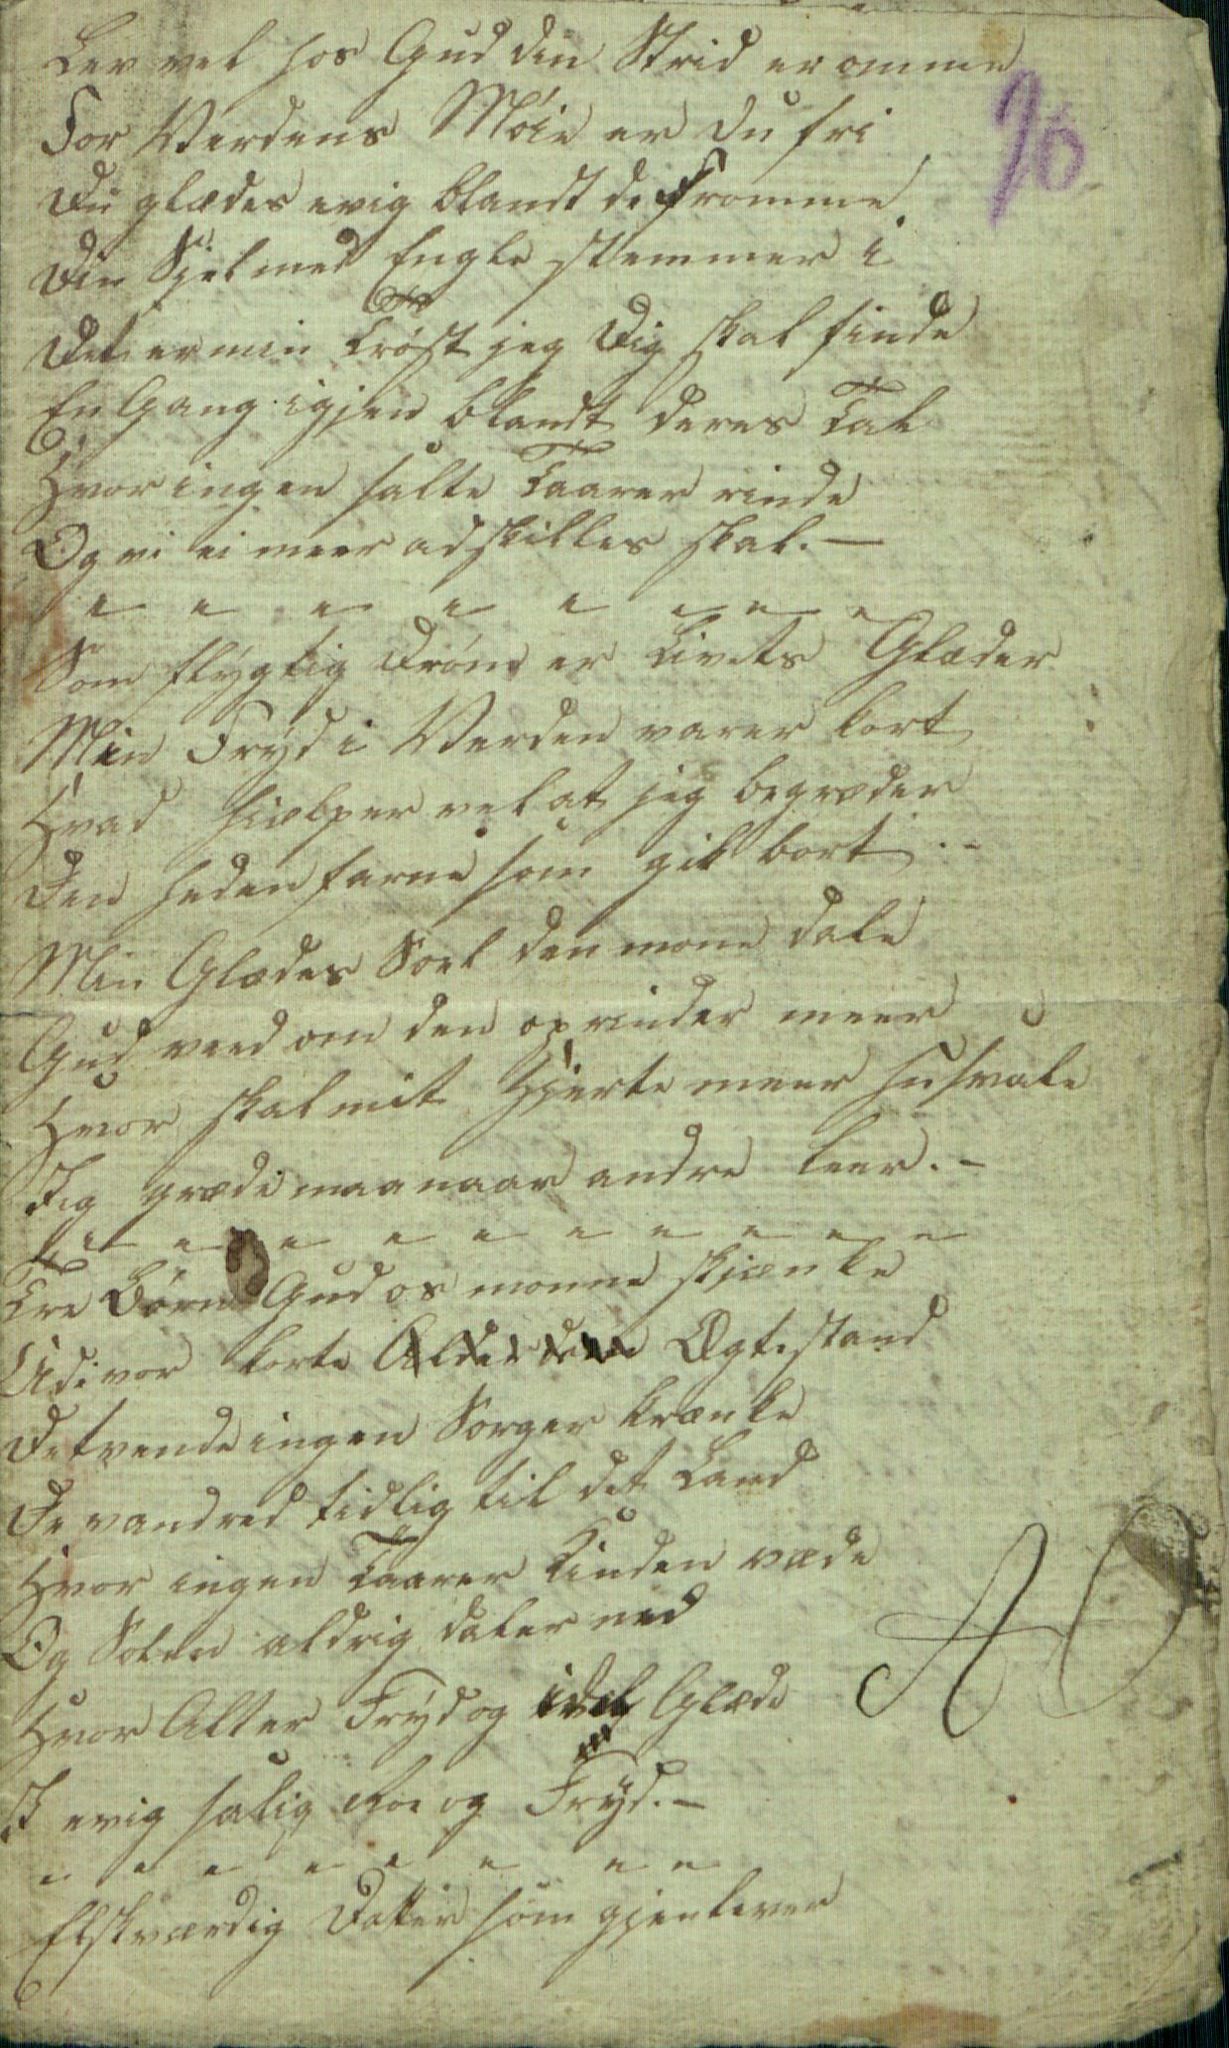 Lev vel hos Gud din Strid er omme
For Verdens Møie er du fri
Du glædes evig blandt de fromme
Din Sjel med Engle stemmer i
Det er min Trøst jeg Dig skal finde
En Gang igjen blandt deres Tal
Hvor ingen salte Taarer rinde
Og vi ei meer adskilles skal. —
Som flygtig Drøm er Livets Glæder
Min Fryd i Verden varer kort
Hvad hielper vel at jeg begræder
Den hedenfarne som gik bort . -
Min Glædes Soel den mone dale
Gud veed om den oprinder meer
Hvor skal mit Hjerte meer husvale
Jeg græde maa naar andre leer. -
Tre Børn Gud os monne skjænke
Udi vor korte Ægtestand
De tvende ingen Sorger krænke
De vandred tidlig til det Land
Hvor ingen Taarer Kinden væde
Og Solen aldrig daler ned
Hvor Alter Fryd og idel Glæde
I evig salig Roe og Fryd. -
Elskværdig Datter som gjenlever
26